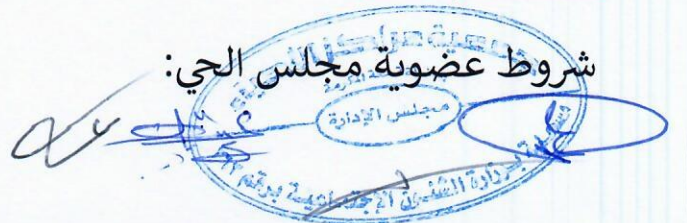 شروط عضوية مجلس الحي:
مجلس الإدارة
بوزارة الشئون الإجتماعية برقم